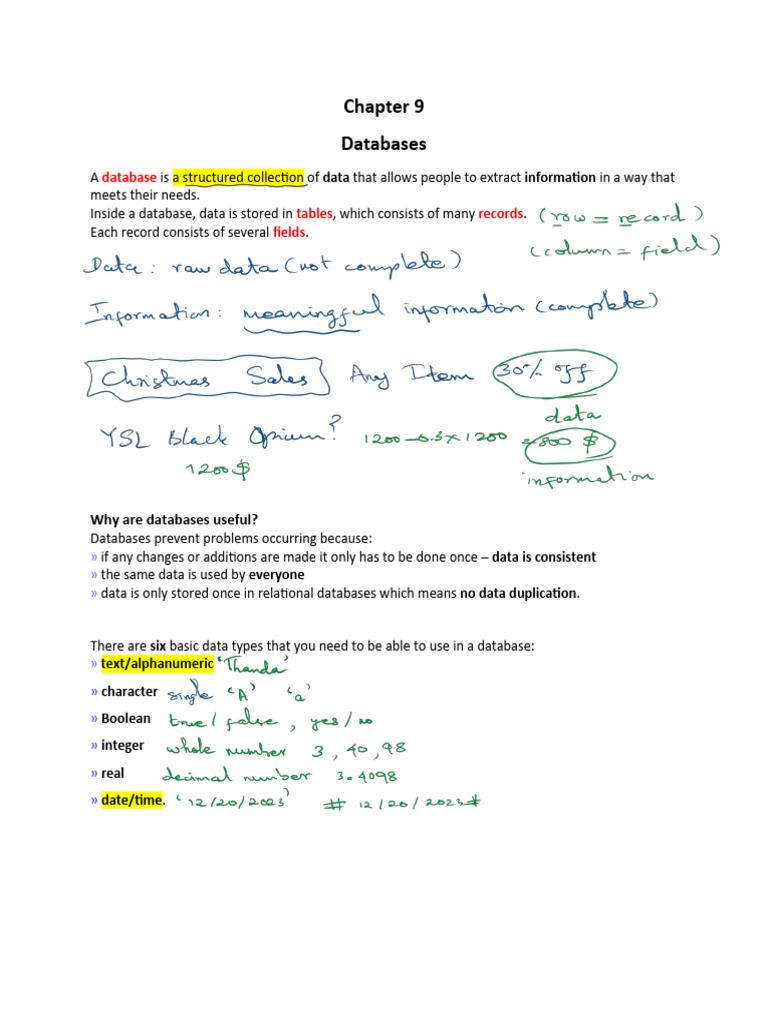 Chapter 9
Databases
A database is a structured collection of data that allows people to extract information in a way that
meets their needs.
Inside a database, data is stored in tables, which consists of many records. (row = record)
Each record consists of several fields. (column = field)
Data : raw data (not complete)
Information : meaningful information (complete)
Christmas Sales Any Item 30% off
data
YSL Black Opium? 1200 - 0.3 x 1200 = 800 $
1200$ information
Why are databases useful?
Databases prevent problems occurring because:
» if any changes or additions are made it only has to be done once – data is consistent
» the same data is used by everyone
» data is only stored once in relational databases which means no data duplication.
There are six basic data types that you need to be able to use in a database:
» text/alphanumeric 'Thanda'
» character single 'A' 'a'
» Boolean true / false , yes / no
» integer whole number 3 , 40 , 98
» real decimal number 3.4098
» date/time. '12/20/2023' # 12/20/2023#